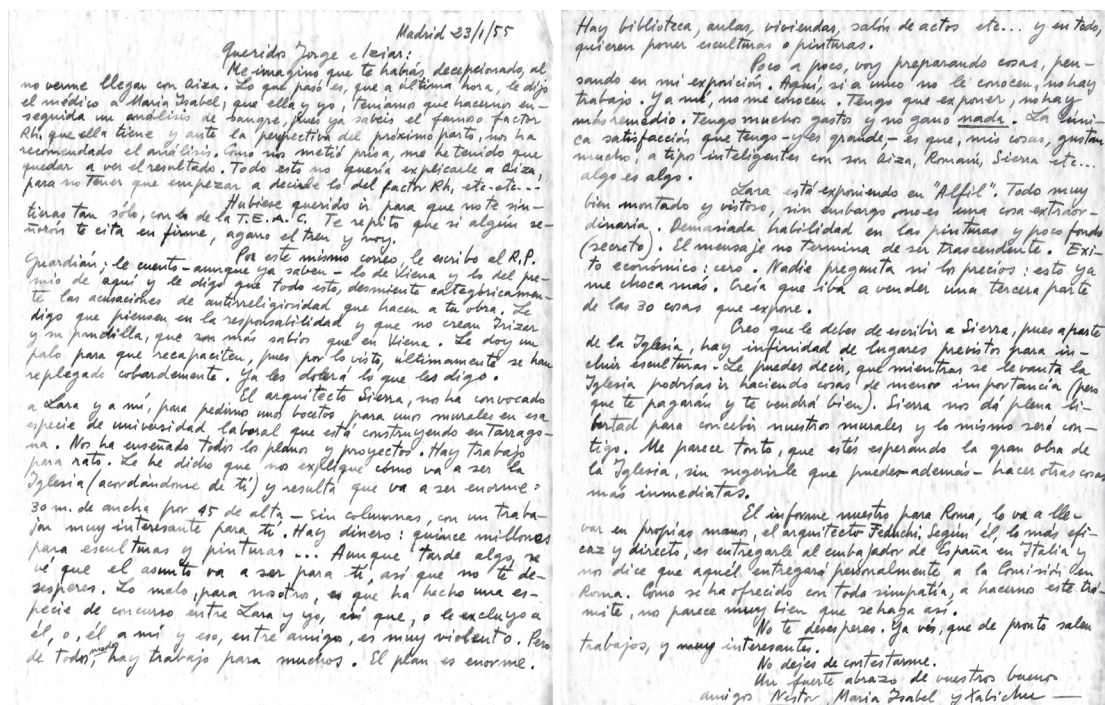 Madrid 23/1/55
Queridos Jorge e Iziar:
Me imagino que te habrás decepcionado, al
no verme llegar con Aiza. Lo que pasó es, que a última hora, le dijo
el médico a Maria Isabel, que ella y yo, teníamos que hacernos en-
seguida un análisis de sangre, pues ya sabeis el famoso factor
Rh, que ella tiene y ante la perspectiva del próximo parto, nos ha
recomendado el análisis. Como nos metió prisa, me he tenido que
quedar a ver el resultado. Todo esto no quería explicarle a Aiza,
para no tener que empezar a decirle lo del factor Rh, etc-etc---
Hubiese querido ir para que no te sin-
tieras tan sólo, con lo de la T.E.A.C. Te repito que si algún se-
ñorón te cita en firme, agarro el tren y voy.
Por este mismo correo, le escribo al R.P.
Guardián; le cuento - aunque ya saben - lo de Viena y lo del pre-
mio de aquí y le digo que todo esto, desmiente categóricamen-
te las acusaciones de antirreligiosidad que hacen a tu obra. Le
digo que piensen en la responsabilidad y que no crean Irizar
y su pandilla, que son más sabios que en Viena. Le doy un
palo para que recapaciten, pues por lo visto, últimamente se han
replegado cobardemente. Ya les dolerá lo que les digo.
El arquitecto Sierra, nos ha convocado
a Lara y a mí, para pedirnos unos bocetos para unos murales en esa
especie de universidad laboral que está construyendo en Tarrago-
na. Nos ha enseñado todos los planos y proyectos. Hay trabajo
para rato. Le he dicho que nos explique cómo va a ser la
Iglesia (acordándome de tí) y resulta que va a ser enorme:
30 m. de ancha por 45 de alta - sin columnas, con un traba-
jon muy interesante para tí. Hay dinero: quince millones
para esculturas y pinturas ... Aunque tarde algo, se
vé que el asunto va a ser para tí, así que no te de-
sesperes. Lo malo, para nosotros, es que ha hecho una es-
pecie de concurso entre Lara y yo, así que, o le excluyo a
él, o, él a mí y eso, entre amigos, es muy violento. Pero
de todos modos, hay trabajo para muchos. El plan es enorme.
Hay biblioteca, aulas, viviendas, salón de actos etc... y en todo,
quieren poner esculturas o pinturas.
Poco a poco, voy preparando cosas, pen-
sando en mi exposición. Aquí, si a uno no le conocen, no hay
trabajo. Y a mí, no me conocen. Tengo que exponer, no hay
más remedio. Tengo muchos gastos y no gano nada. La úni-
ca satisfacción que tengo - y es grande - es que, mis cosas, gustan
mucho, a tipos inteligentes con son Aiza, Romaní, Sierra etc...
algo es algo.
Lara está exponiendo en "Alfil". Todo muy
bien montado y vistoso, sin embargo no es una cosa extraor-
dinaria. Demasiada habilidad en las pinturas y poco fondo
(secreto). El mensaje no termina de ser trascendente. Exi-
to económico: cero. Nadie pregunta ni los precios: esto ya
me choca más. Creía que iba a vender una tercera parte
de las 30 cosas que expone.
Creo que le debes de escribir a Sierra, pues aparte
de la Iglesia, hay infinidad de lugares previstos para in-
cluir esculturas. Le puedes decir, que mientras se levanta la
Iglesia podrías ir haciendo cosas de menor importancia (pero
que te pagarán y te vendrá bien). Sierra nos dá plena li-
bertad para concebir nuestros murales y lo mismo será con-
tigo. Me parece tonto, que estés esperando la gran obra de
la Iglesia, sin sugerirle que puedes - además - hacer otras cosas
más inmediatas.
El informe nuestro para Roma, lo va a lle-
var en propias manos, el arquitecto Feduchi. Según él, lo más efi-
caz y directo, es entregarle al embajador de España en Italia y
nos dice que aquél entregará personalmente a la Comisión en
Roma. Como se ha ofrecido con toda simpatía, a hacernos este trá-
mite, nos parece muy bien que se haga así.
No te desesperes. Ya vés, que de pronto salen
trabajos, y muy interesantes.
No dejes de contestarme.
Un fuerte abrazo de vuestros buenos
amigos Nestor, Maria Isabel y Xabichu —